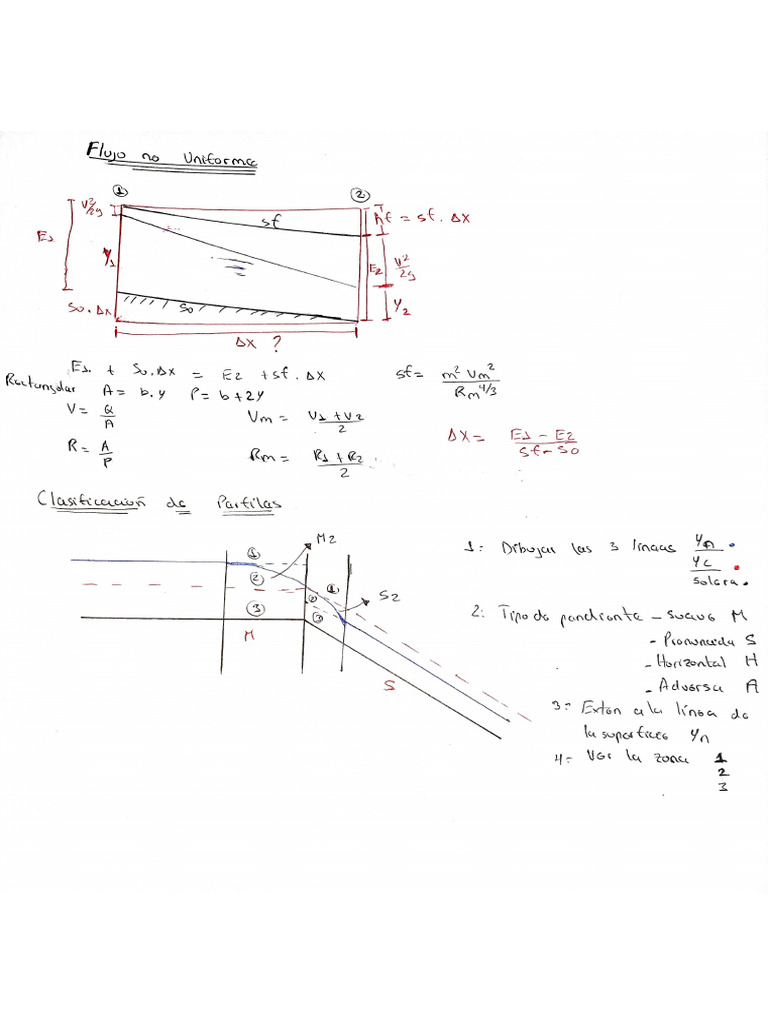 Flujo no Uniforme
① ②
V²/2g
sf
hf = sf . Δx
E1
Y1
E2
V²/2g
So.Δx
So
Y2
Δx ?
E1 + So.Δx = E2 + sf.Δx
sf = m² Vm² / Rm^4/3
Rectangular A = b.y P = b + 2y
V = Q/A
Vm = V1 + V2 / 2
Δx = E1 - E2 / Sf - So
R = A/P
Rm = R1 + R2 / 2
Clasificacion de Perfiles
M2
①
②
③
M
①
②
③
S2
S
1: Dibujar las 3 lineas Yn
Yc
solera
2: Tipo de pendiente - Suave M
- Pronunciada S
- Horizontal H
- Adversa A
3= Exten a la línea de
la superficee Yn
4= Ver la zona 1
2
3